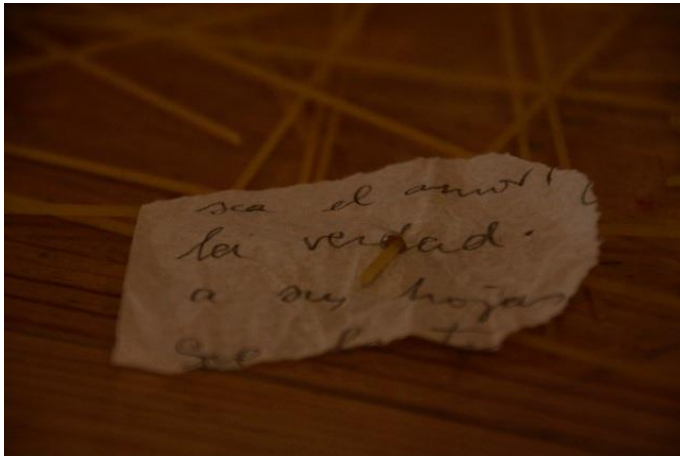 sea el amor
la verdad.
a sus hojas